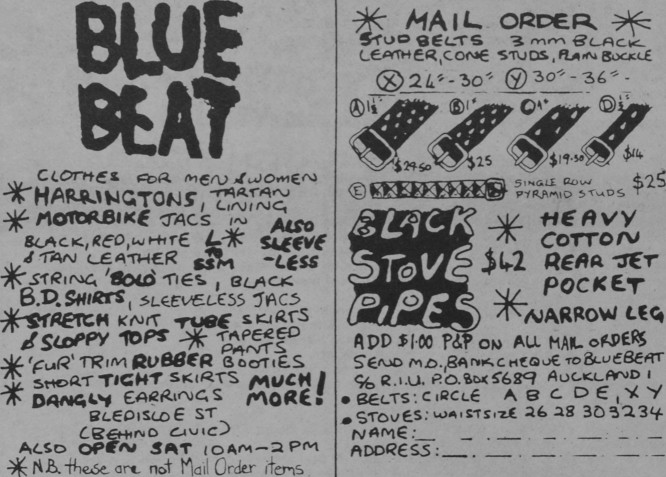 BLUE
BEAT
CLOTHES FOR MEN & WOMEN
* HARRINGTONS, TARTAN
LINING
* MOTORBIKE JACS IN
BLACK, RED, WHITE L *
& TAN LEATHER TO
SSM
ALSO
SLEEVE
-LESS
* STRING 'BOLO' TIES, BLACK
B.D. SHIRTS, SLEEVELESS JACS
* STRETCH KNIT TUBE SKIRTS
& SLOPPY TOPS * TAPERED
PANTS
* 'FUR' TRIM RUBBER BOOTIES
* SHORT TIGHT SKIRTS MUCH
* DANGLY EARRINGS MORE!
BLEDISLOE ST
(BEHIND CIVIC)
ALSO OPEN SAT 10AM-2PM
* N.B. these are not Mail Order items
* MAIL ORDER *
STUD BELTS 3mm BLACK
LEATHER, CONE STUDS, PLAIN BUCKLE
X 24"-30" Y 30"-36"
A 1½" B 1" C 1" D ½"
$24.50 $25 $19.50 $14
E SINGLE ROW
PYRAMID STUDS $25
BLACK
STOVE
PIPES
$42
* HEAVY
COTTON
REAR JET
POCKET
* NARROW LEG
ADD $1.00 P&P ON ALL MAIL ORDERS
SEND M.O., BANK CHEQUE TO BLUEBEAT
c/o R.I.U. P.O. BOX 5689 AUCKLAND 1
• BELTS: CIRCLE A B C D E, X Y
• STOVES: WAIST SIZE 26 28 30 32 34
NAME:
ADDRESS: